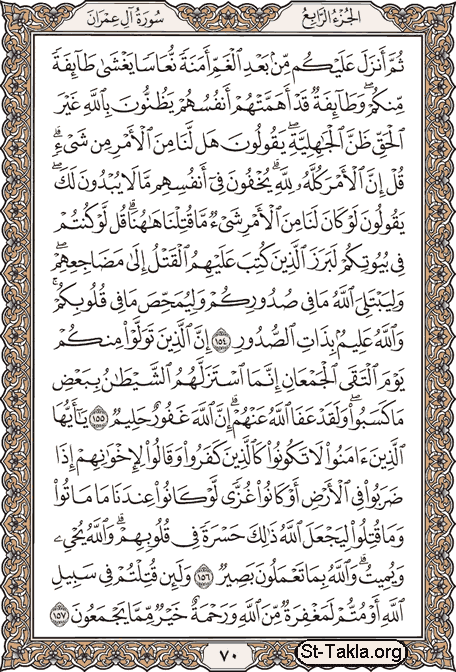 سُورَةُ آلِ عِمْرَان
الجُزْءُ الرَّابِعُ
ثُمَّ أَنزَلَ عَلَيْكُم مِّنۢ بَعْدِ ٱلْغَمِّ أَمَنَةً نُّعَاسًا يَغْشَىٰ طَآئِفَةً
مِّنكُمْ ۖ وَطَآئِفَةٌ قَدْ أَهَمَّتْهُمْ أَنفُسُهُمْ يَظُنُّونَ بِٱللَّهِ غَيْرَ
ٱلْحَقِّ ظَنَّ ٱلْجَٰهِلِيَّةِ ۖ يَقُولُونَ هَل لَّنَا مِنَ ٱلْأَمْرِ مِن شَىْءٍ ۗ
قُلْ إِنَّ ٱلْأَمْرَ كُلَّهُۥ لِلَّهِ ۗ يُخْفُونَ فِىٓ أَنفُسِهِم مَّا لَا يُبْدُونَ لَكَ ۖ
يَقُولُونَ لَوْ كَانَ لَنَا مِنَ ٱلْأَمْرِ شَىْءٌ مَّا قُتِلْنَا هَٰهُنَا ۗ قُل لَّوْ كُنتُمْ
فِى بُيُوتِكُمْ لَبَرَزَ ٱلَّذِينَ كُتِبَ عَلَيْهِمُ ٱلْقَتْلُ إِلَىٰ مَضَاجِعِهِمْ ۖ
وَلِيَبْتَلِىَ ٱللَّهُ مَا فِى صُدُورِكُمْ وَلِيُمَحِّصَ مَا فِى قُلُوبِكُمْ ۗ
وَٱللَّهُ عَلِيمٌۢ بِذَاتِ ٱلصُّدُورِ ١٥٤ إِنَّ ٱلَّذِينَ تَوَلَّوْا۟ مِنكُمْ
يَوْمَ ٱلْتَقَى ٱلْجَمْعَانِ إِنَّمَا ٱسْتَزَلَّهُمُ ٱلشَّيْطَٰنُ بِبَعْضِ
مَا كَسَبُوا۟ ۖ وَلَقَدْ عَفَا ٱللَّهُ عَنْهُمْ ۗ إِنَّ ٱللَّهَ غَفُورٌ حَلِيمٌ ١٥٥ يَٰٓأَيُّهَا
ٱلَّذِينَ ءَامَنُوا۟ لَا تَكُونُوا۟ كَٱلَّذِينَ كَفَرُوا۟ وَقَالُوا۟ لِإِخْوَٰنِهِمْ إِذَا
ضَرَبُوا۟ فِى ٱلْأَرْضِ أَوْ كَانُوا۟ غُزًّى لَّوْ كَانُوا۟ عِندَنَا مَا مَاتُوا۟
وَمَا قُتِلُوا۟ لِيَجْعَلَ ٱللَّهُ ذَٰلِكَ حَسْرَةً فِى قُلُوبِهِمْ ۗ وَٱللَّهُ يُحْىِۦ
وَيُمِيتُ ۗ وَٱللَّهُ بِمَا تَعْمَلُونَ بَصِيرٌ ١٥٦ وَلَئِن قُتِلْتُمْ فِى سَبِيلِ
ٱللَّهِ أَوْ مُتُّمْ لَمَغْفِرَةٌ مِّنَ ٱللَّهِ وَرَحْمَةٌ خَيْرٌ مِّمَّا يَجْمَعُونَ ١٥٧
٧٠
St-Takla.org